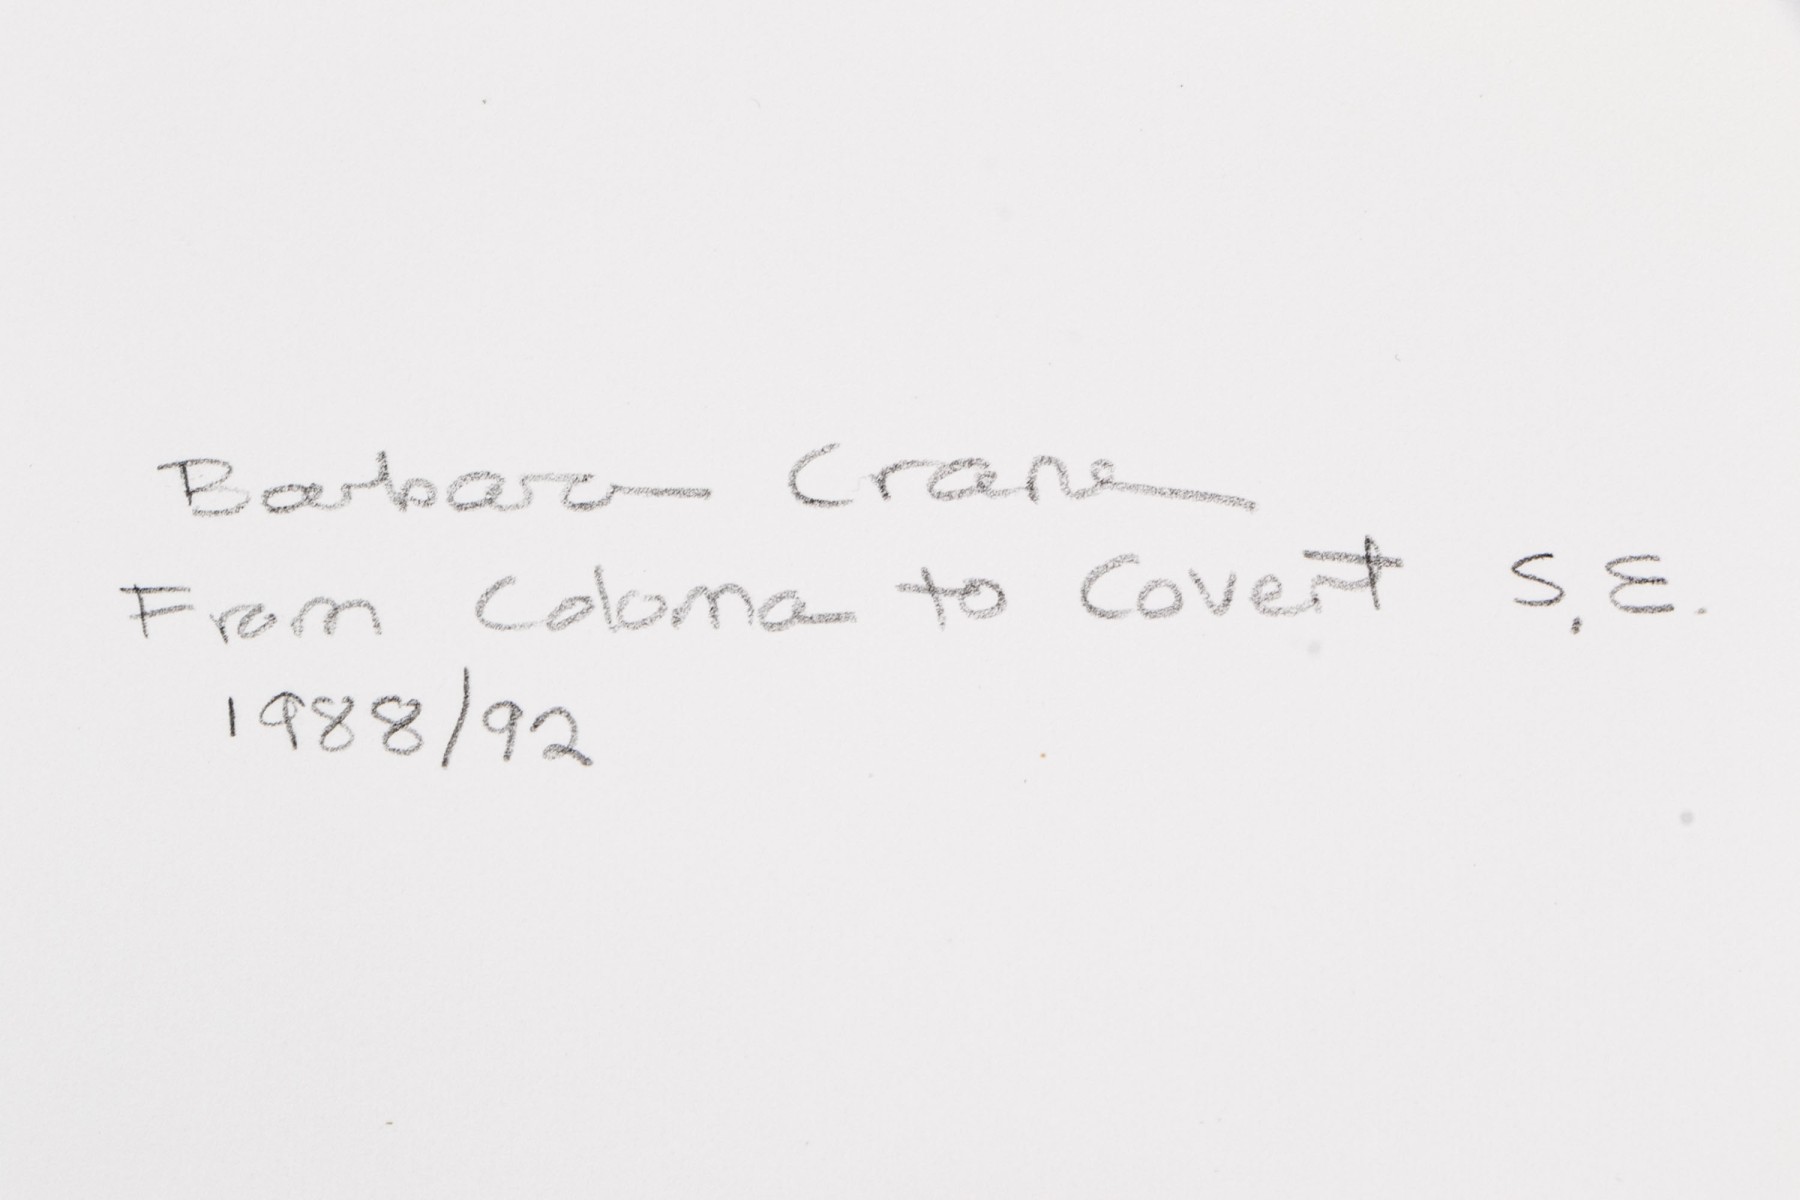 Barbara Crane
From Coloma to Covert S.E.
1988/92